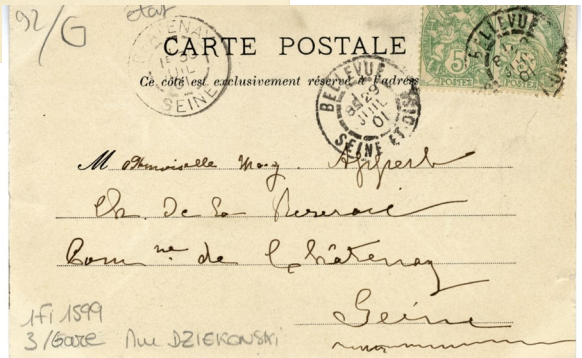 92/G
état
CHATENAY
SEINE
CARTE POSTALE
Ce côté est exclusivement réservé à l'adresse
BELLEVUE
29
JUIL
01
SEINE ET OISE
BELLEVUE
5
POSTES
Mademoiselle Marg. Appert
Ch. De La Roseraie
Comne de Châtenay
Seine
1Fi 1599
3/Gare Mme DZIEKONSKI